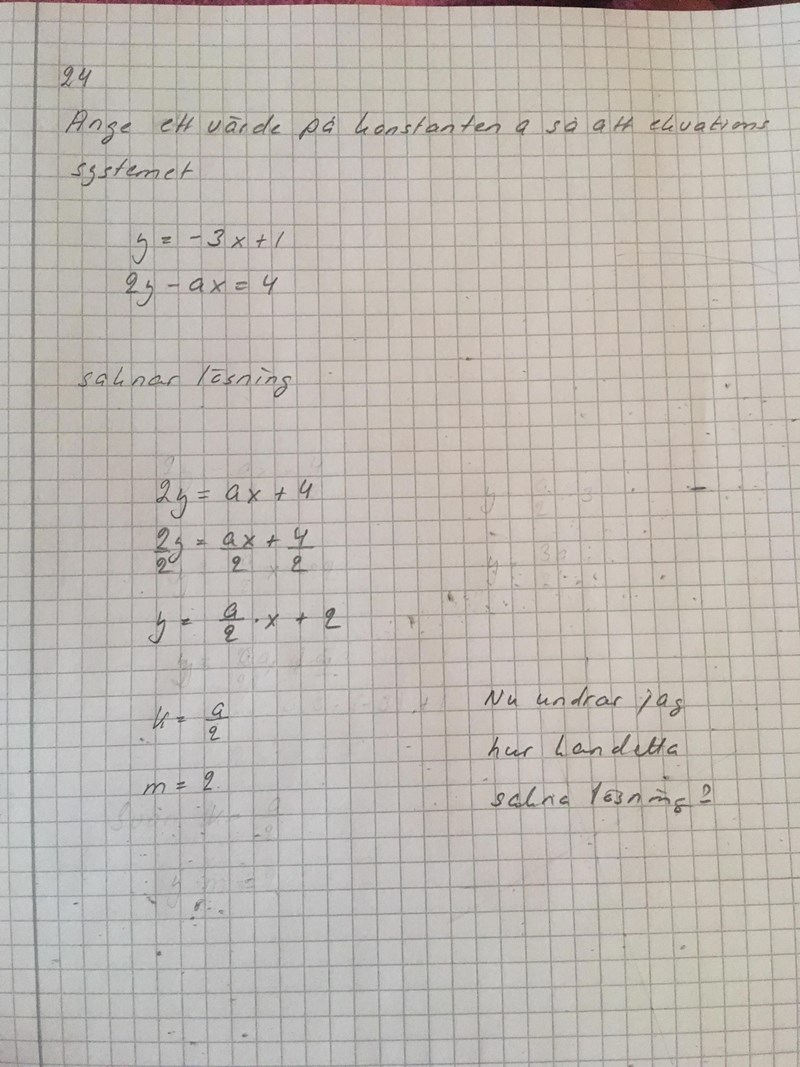 24
Ange ett värde på konstanten a så att ekvations
systemet
y = -3x+1
2y - ax = 4
saknar lösning
2y = ax + 4
2y/2 = ax/2 + 4/2
y = a/2 · x + 2
k = a/2
m = 2
Nu undrar jag
hur kan detta
sakna lösning?